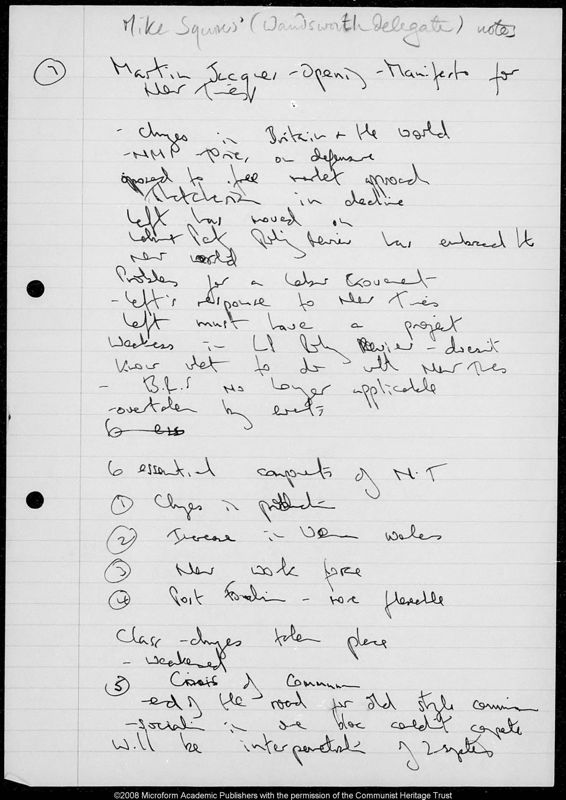 Mike Squires' (Wandsworth Delegate) notes
1
Martin Jacques - Opening - Manifesto for
New Times
- Changes in Britain & the world
on defensive
opposed to free market approach
Thatcherism in decline
Left has moved on
Labour Policy Review has embraced the
new world
Problems for a Labour Government
- left's response to New Times
left must have a project
Weakness in LP Policy Review - doesn't
know what to do with New Times
- B.R.S no longer applicable
- overtaken by events
6 ess
6 essential components of N.T
1 Changes in production
2 Increase in women workers
3 New work force
4 Post Fordism - more flexible
Class - changes taken place
- weakened
5 Crisis of Communism
- end of the road for old style communism
- socialism in one bloc couldn't compete
Will be interpenetration of 2 systems
©2008 Microform Academic Publishers with the permission of the Communist Heritage Trust